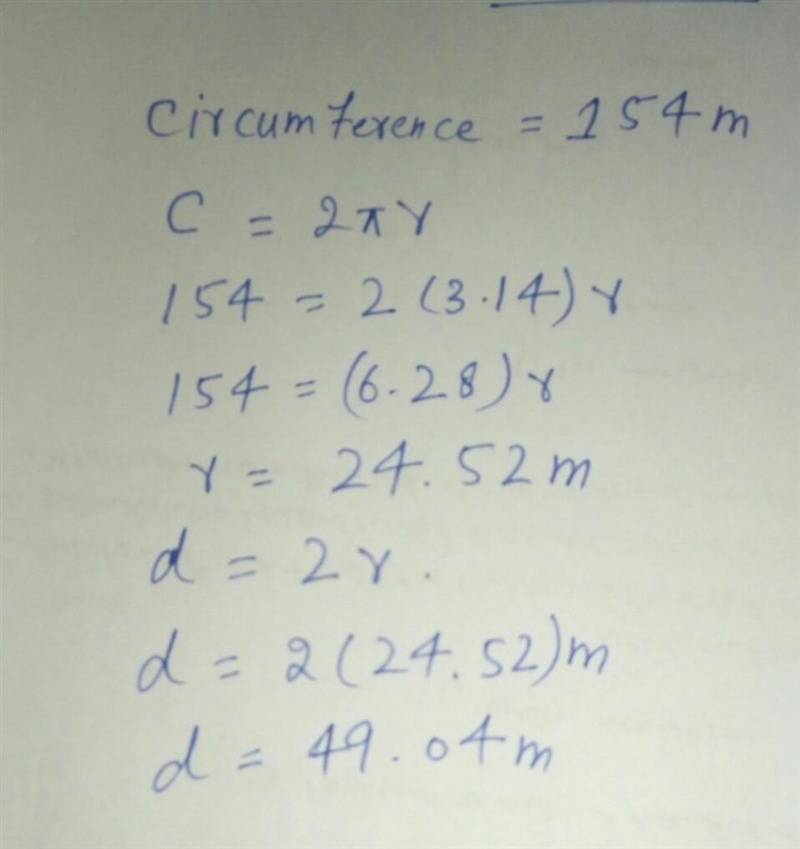 Circumference = 154m
C = 2πr
154 = 2(3.14)r
154 = (6.28)r
r = 24.52m
d = 2r.
d = 2(24.52)m
d = 49.04m